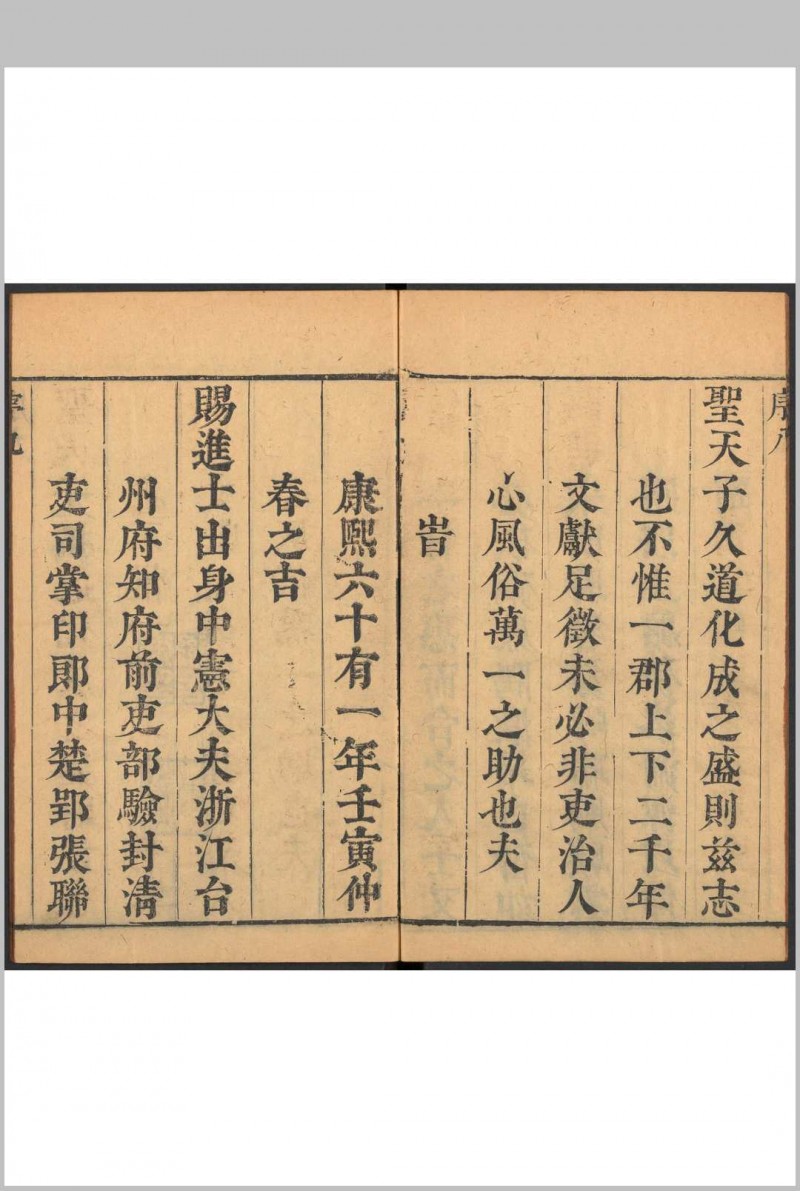 序八
聖天子久道化成之盛則兹志
也不惟一郡上下二千年
文獻足徵未必非吏治人
心風俗萬一之助也夫
旹
康熙六十有一年壬寅仲
春之吉
賜進士出身中憲大夫浙江台
州府知府前吏部驗封淸
吏司掌印郎中楚郢張聯
序九